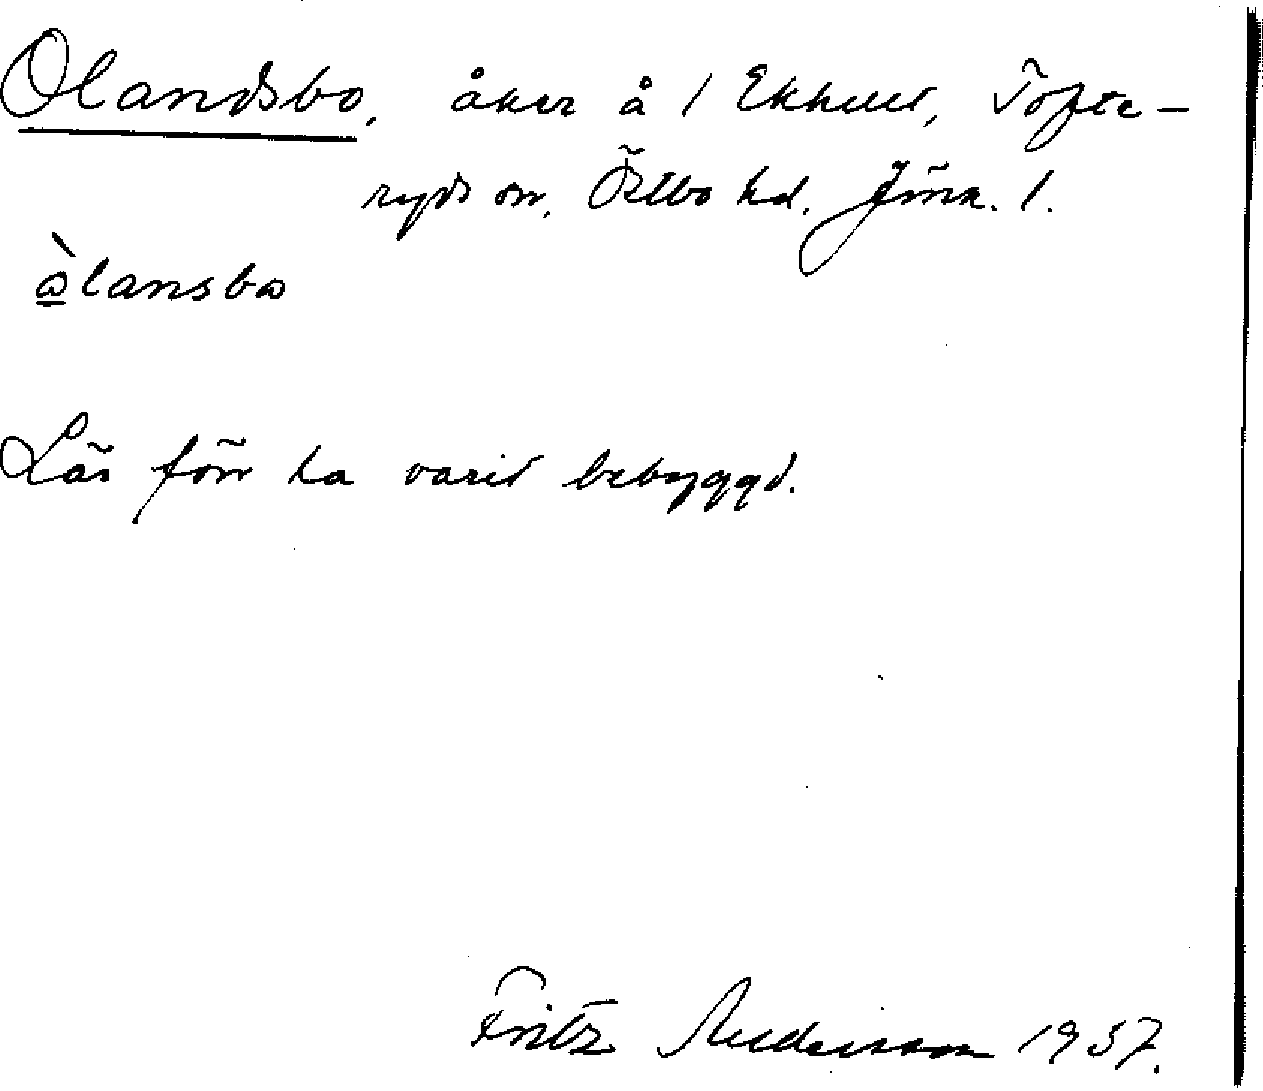 Olandsbo, åker å 1 Ekhult, Töfte-
ryds sn, Östbo hd. Jönk. l.
ò̲lansbo
Läs förr ha varit bebyggd.
Fritz Andersson 1937.